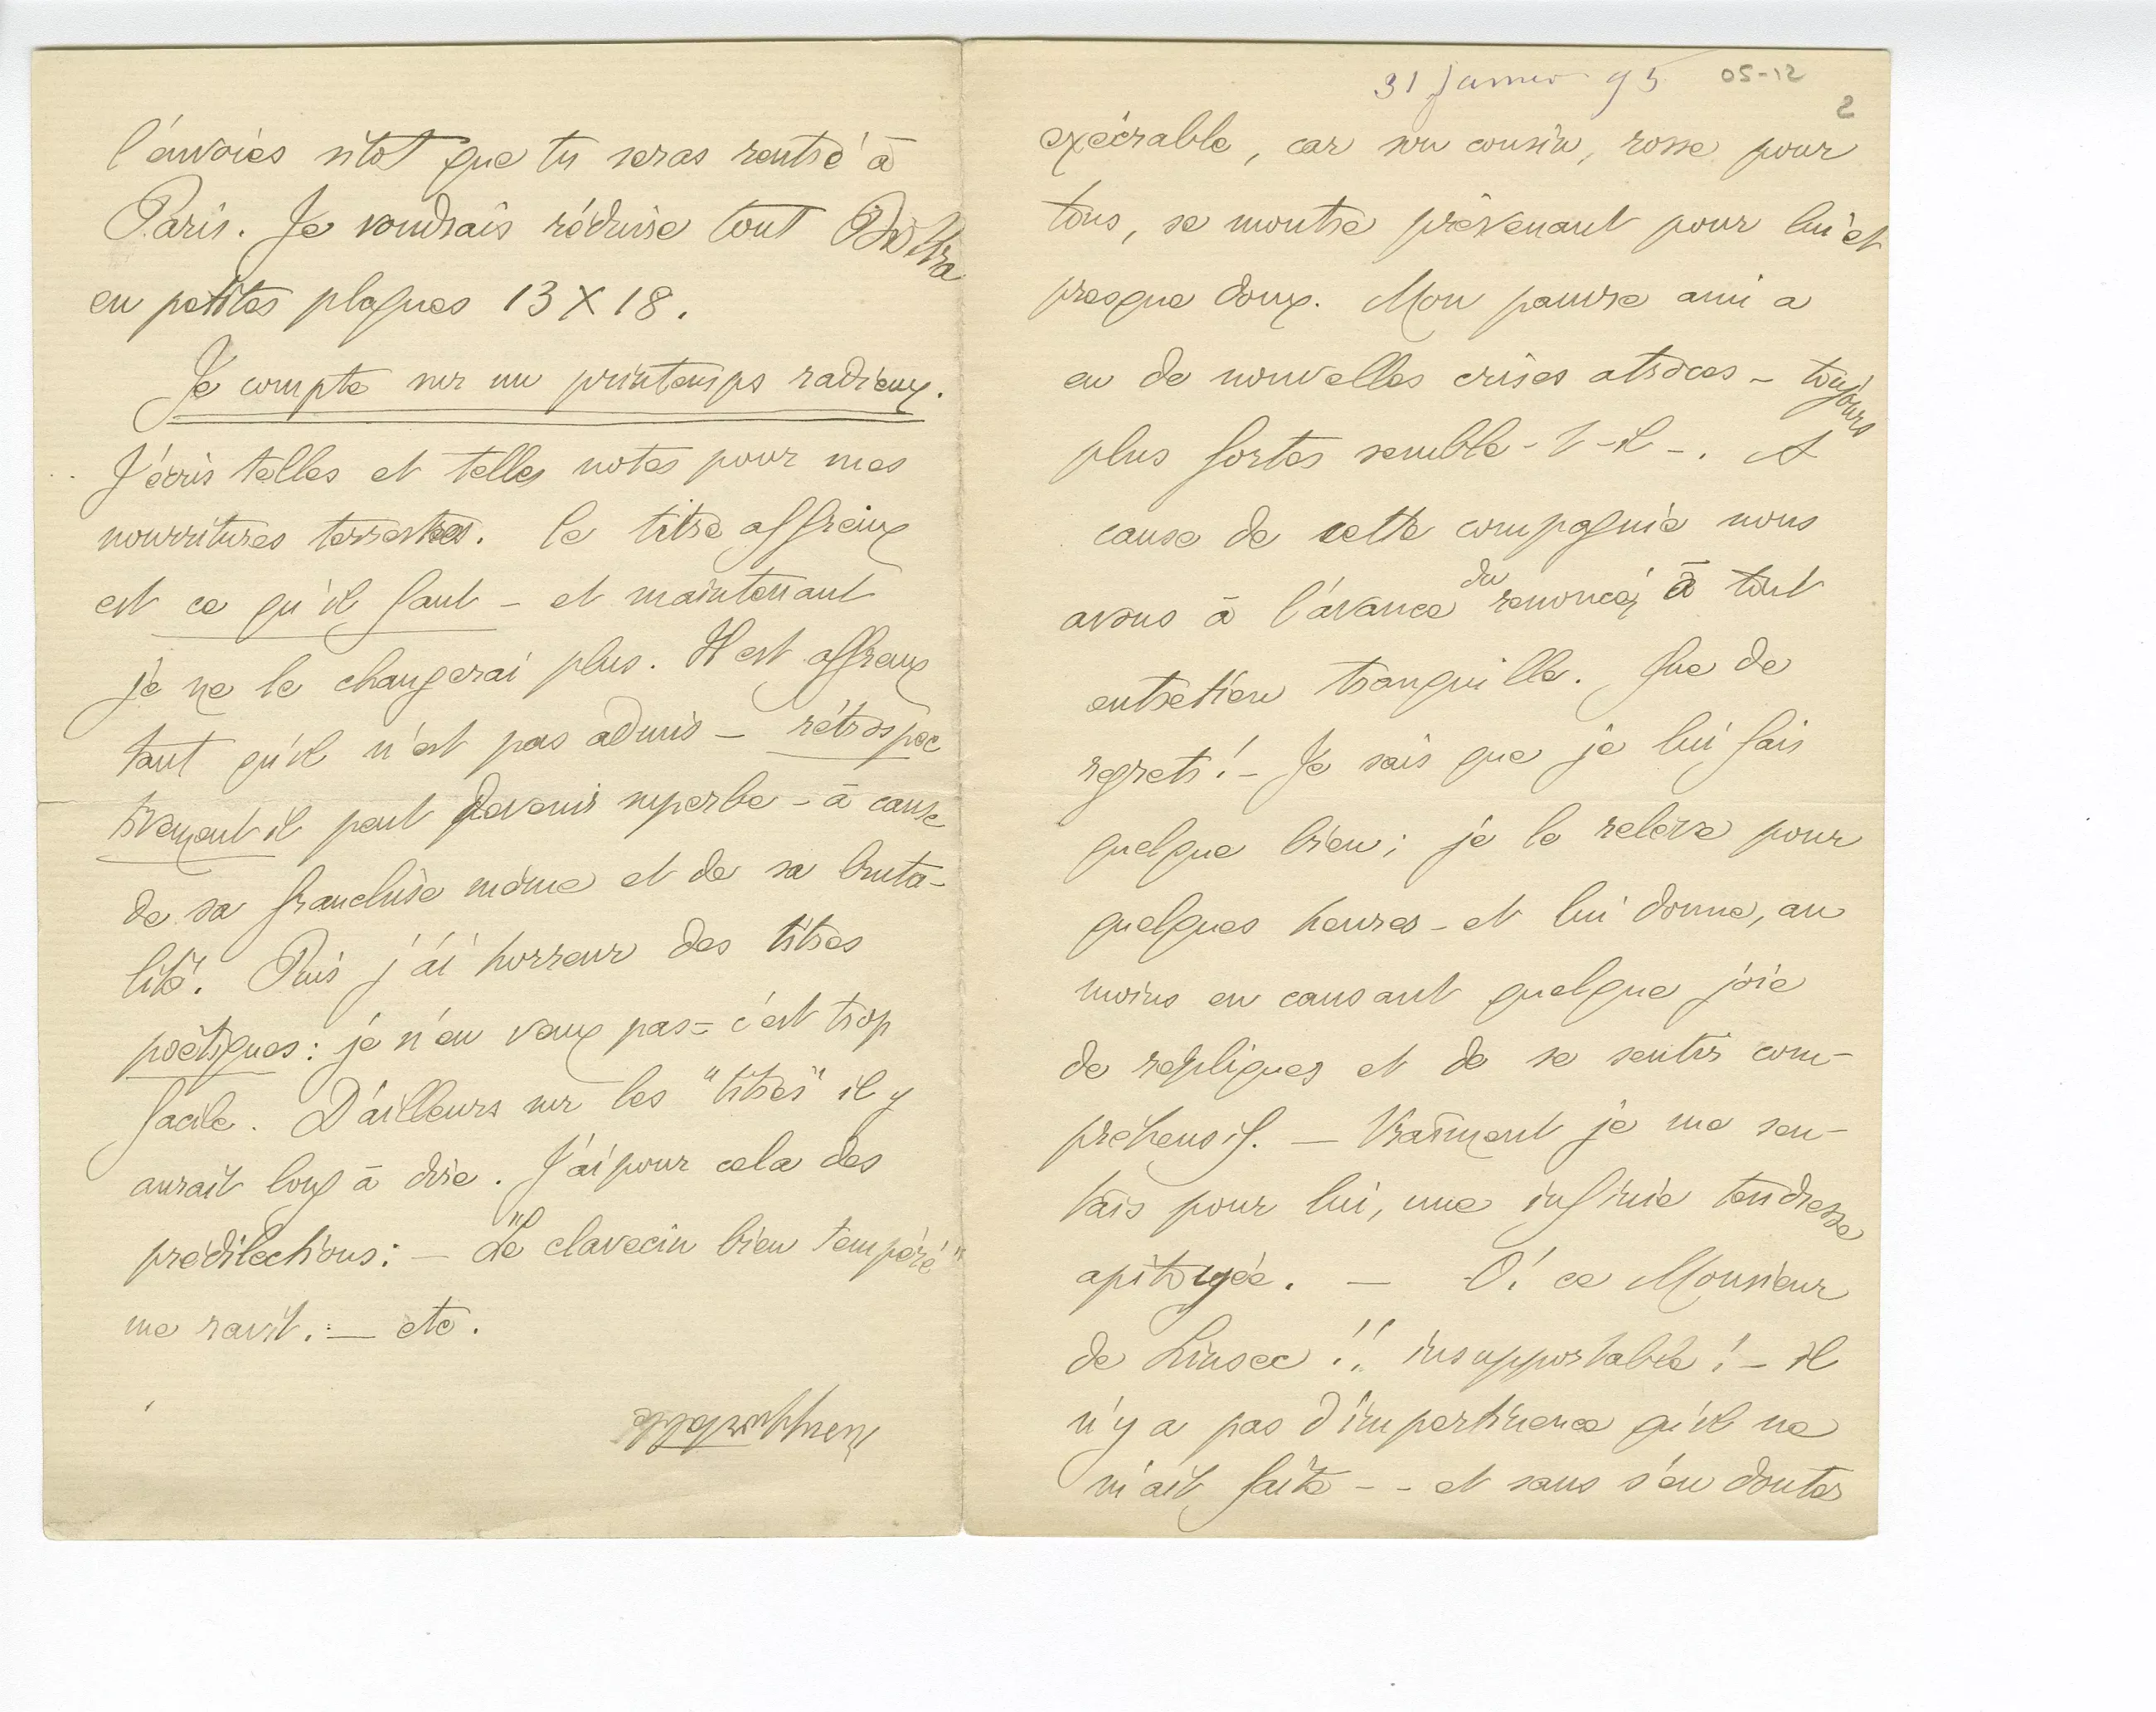 l'envoies sitot que tu seras rentré à
Paris. Je voudrais réduire tout Biskra
en petites plaques 13 X 18.
Je compte sur un printemps radieux.
J'écris telles et telles notes pour mes
nourritures terrestres. le titre affreux
est ce qu'il faut – et maintenant
je ne le changerai plus. Il est affreux
tant qu'il n'est pas admis – rétrospec
tivement il peut devenir superbe – à cause
de sa franchise même et de sa bruta-
lité. Puis j'ai horreur des titres
poëtiques : je n'en veux pas – c'est trop
facile. D'ailleurs sur les "titres" il y
aurait long à dire. J'ai pour cela des
prédilections : – "Le clavecin bien tempéré"
me ravit. – etc.
31 Janvier 95 05-12
2
exécrable, car son cousin, rosse pour
tous, se montre prévenant pour lui et
presque doux. Mon pauvre ami a
eu de nouvelles crises atroces – toujours
plus fortes semble-t-il –. A
cause de cette compagnie nous
avons à l'avance du renoncer à tout
entretien tranquille. Que de
regrets ! – Je sais que je lui fais
quelque bien ; je le relève pour
quelques heures – et lui donne, au
moins en causant quelque joie
de repliques et de se sentir com-
préhensif. – Vraiment je me sen-
tais pour lui, une infinie tendresse
apitoyée. – O! ce Monsieur
de Linsec !! insupportable ! – il
n'y a pas d'impertinence qu'il ne
m'ait faite - - et sans s'en douter